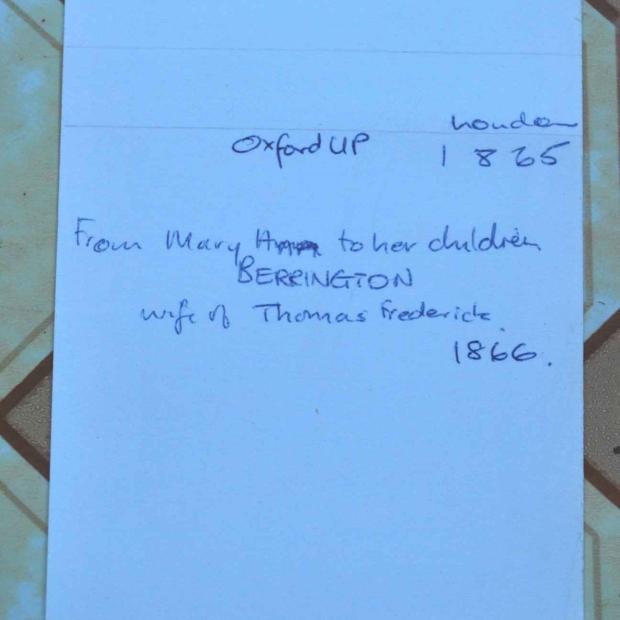 London
Oxford UP 1865
From Mary to her children
BERRINGTON
wife of Thomas Frederick.
1866.